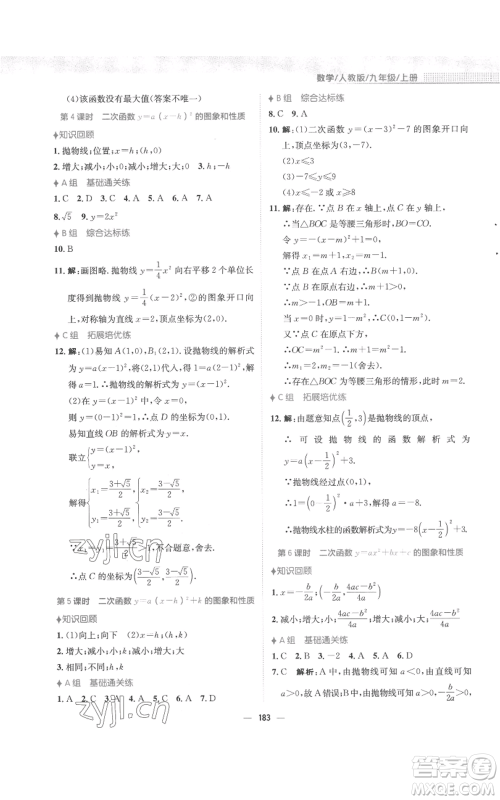 数学/人教版/九年级/上册
(4)该函数没有最大值(答案不唯一)
第4课时 二次函数y=a(x-h)²的图象和性质
知识回顾
1. 抛物线;位置;x=h;h;-h
2. 增大;减小;小;0;减小;增大;大;0
A组 基础通关练
1. C 2. D 3. C 4. C 5. B 6. A 7. C
8. √5 9. y=2x²
B组 综合达标练
10. B
11. 解:画图略, 抛物线y=1/4x²向右平移2个单位长
度得到抛物线y=1/4(x-2)²,②的图象开口向
上, 对称轴为直线x=2, 顶点坐标为(2,0).
C组 拓展培优练
12. 解:(1)易知A(1,0),B₁(2,1). 设抛物线的解析式
为y=a(x-1)², 代入点B的坐标(2,1),
解得a=1. ∴抛物线的解析式为y=(x-1)².
(2)存在,
则y=(x-1)²=1, 点D的坐标为(0,1).
易知直线OB的解析式为
联立{y=(x-1)²,
解得{x₁=(3+√5)/2, {x₂=(3-√5)/2,
不合题意,舍去;
∴点C的坐标为
第5课时 二次函数y=a(x-h)²+k的图象和性质
知识回顾
1. (1)向上 向下 (2)x=h (3)(h,k)
2. 相同;不同;上;下;h;k
A组 基础通关练
1. A 2. C 3. A 4. C 5. B 6. A 7. D
B组 综合达标练
8. C 9. A
10. 解:(1)二次函数y=(x-3)²-7的图象开口向
上, 对称轴为直线x=3, 顶点坐标为(3,-7).
(2)x≤3
(3)-7≤y≤2
(4)x≤0或x≥6
11. 解:存在. ∵点B在x轴上, 点C在y轴上,
∴当△BOC是等腰三角形时,BO=CO.
令y=-(x-m)²+1=0,
解得x=m+1或x=m-1.
∵点B在点A的右边,
∴m-1
当x=0时,y=1-m²,
∵点C在原点下方,
∴OC=m²-1=m+1,
∴m₁=2,m₂=-1(舍去).
∴存在△BOC为等腰三角形的情形, 此时m=2.
C组 拓展培优练
12. 解:由题意知点(1/2,3)是抛物线的顶点,
∴可设抛物线的函数解析式为
y=a(x-1/2)²+3.
∵抛物线经过点(0,1),
∴1=(0-1/2)²·a+3.
解得a=-8.
∴抛物线水柱的函数解析式为y=-8(x-1/2)²+3.
第6课时 二次函数y=ax²+bx+c的图象和性质
知识回顾
1. x=-b/2a;(-b/2a,(4ac-b²)/4a)
2. 减小;增大;小;(4ac-b²)/4a;增大;减小;大;(4ac-b²)/4a
A组 基础通关练
1. C 2. B 3. -2 4. D 5. D 6. D
7. C 解析:A. 由抛物线可知a<0, 由直线可知
a<0, 故本选项错误;B. 由抛物线可知a>0,
-b/2a>0, 得b<0, 由直线可知a>0,b>0, 故本选
183
zyjl.cn
zyjl.cn
作业精灵